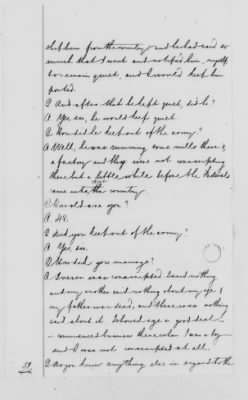 them from the country and he had said so
much that I went and notified him, myself
to remain quiet, and I would keep him
posted.
Q And after that he kept quiet, did he?
A. Yes, sir, he would keep quiet.
Q How did he keep out of the army?
A. Well, he was running some mills there &
a factory and they were not conscripting
there but a little while before the Federals
came into the country.
Q How old are you?
A. 48.
Q Did you keep out of the army?
A. Yes, sir.
Q How did you manage?
A. I never was conscripted I said nothing
and my mother said nothing about my age &
my father was dead, and there was nothing
said about it. I showed age a good deal
commenced business there when I was a boy
and I was not conscripted at all.
Q Do you know anything else in regard to the